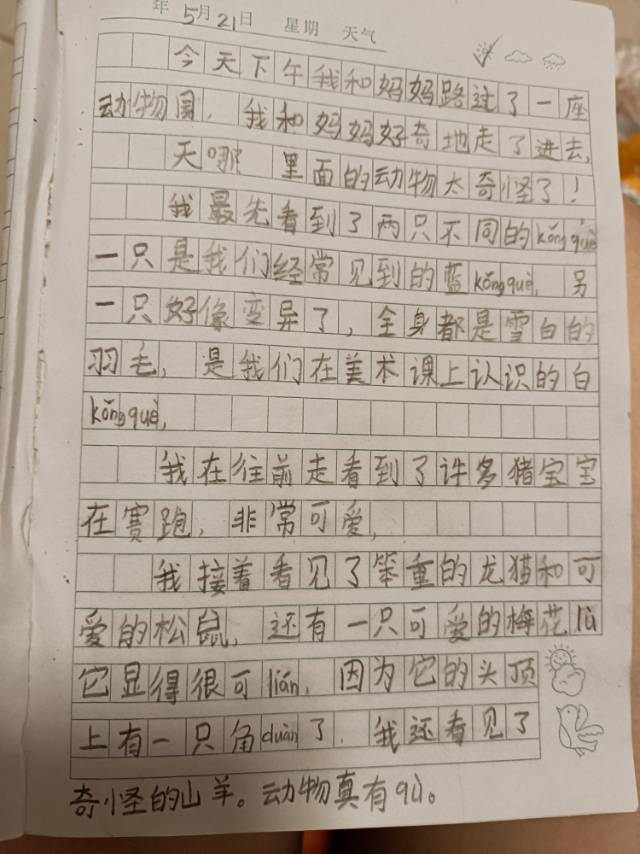 年5月21日 星期 天气
今天下午我和妈妈路过了一座
动物园，我和妈妈好奇地走了进去，
天哪 里面的动物太奇怪了！
我最先看到了两只不同的kǒng què
一只是我们经常见到的蓝kǒng què，另
一只好像变异了，全身都是雪白的
羽毛，是我们在美术课上认识的白
kǒng què，
我在往前走看到了许多猪宝宝
在赛跑，非常可爱，
我接着看见了笨重的龙猫和可
爱的松鼠，还有一只可爱的梅花lù
它显得很可lián，因为它的头顶
上有一只角duàn了，我还看见了
奇怪的山羊。动物真有qù。